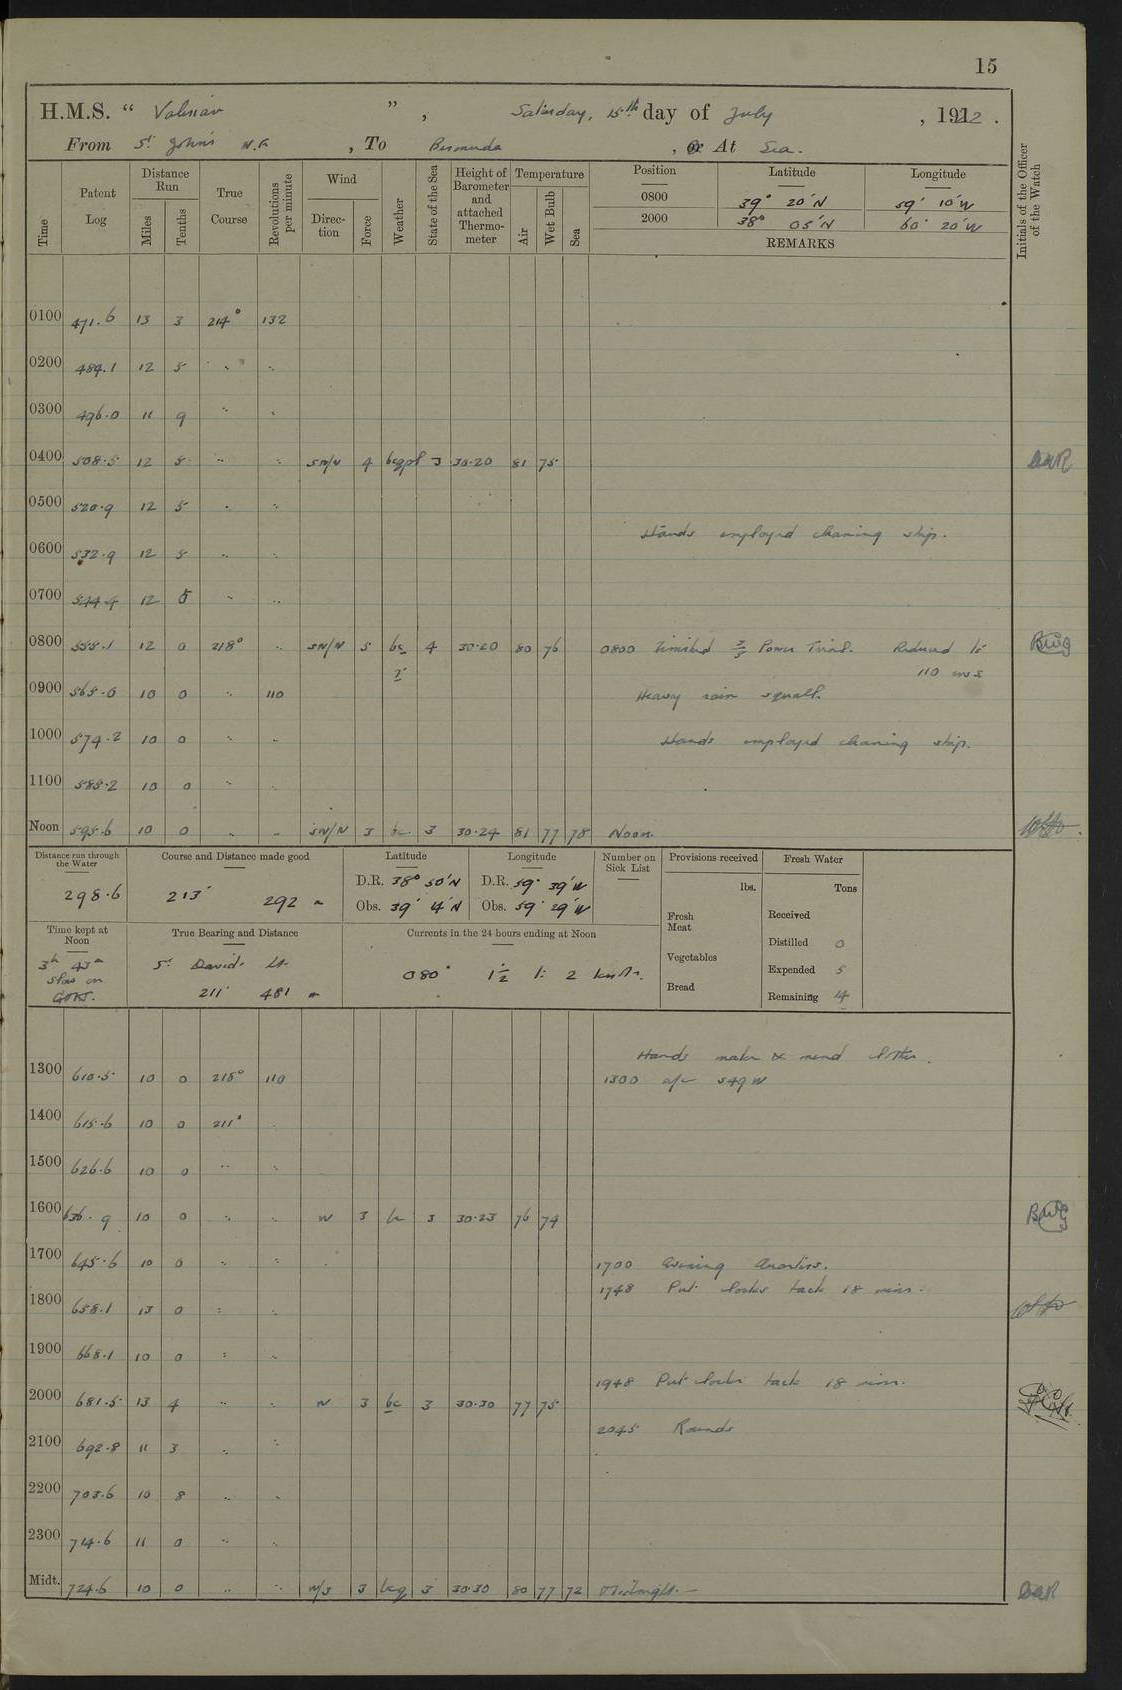 15
H.M.S. “ Valerian ” , Saturday, 15th day of July , 1922 .
From St Johns N.F , To Bermuda , or At Sea.
Time Patent Log Distance Run Miles Tenths True Course Revolutions per minute Wind Direction Force Weather State of the Sea Height of Barometer and attached Thermometer Temperature Air Wet Bulb Sea Position Latitude Longitude Initials of the Officer of the Watch
0800 39° 20'N 59° 10'W
2000 38° 05'N 60° 20'W
REMARKS
0100 471.6 13 3 214° 132
0200 484.1 12 5 " "
0300 496.0 11 9 " "
0400 508.5 12 5 " " SW/W 4 bcqpl 3 30.20 81 75
0500 520.9 12 5 " "
Hands employed cleaning ship.
0600 532.9 12 5 " "
0700 544.4 12 5 " "
0800 558.1 12 0 218° " SW/W 5 bc 4 30.20 80 76 0800 Finished 2/5 Power Trial. Reduced to BWG
r 110 revs
0900 565.0 10 0 " 110 Heavy rain squall.
1000 574.2 10 0 " " Hands employed cleaning ship.
1100 585.2 10 0 " "
Noon 595.6 10 0 " " SW/W 3 bc 3 30.24 81 77 78 Noon.
Distance run through the Water Course and Distance made good Latitude Longitude Number on Sick List Provisions received Fresh Water
298.6 213° 292 m D.R. 38° 50'N D.R. 59° 39'W lbs. Tons
Obs. 39° 4'N Obs. 59° 29'W Fresh Meat Received
Time kept at Noon True Bearing and Distance Currents in the 24 hours ending at Noon Distilled 0
3h 43m slow on G.M.T. St Davids Lt. 211° 481 m 080° 1½ to 2 knots. Vegetables Expended 5
Bread Remaining 4
Hands make & mend clothes.
1300 610.5 10 0 218° 110 1300 a/c S49W
1400 615.6 10 0 211° "
1500 626.6 10 0 " "
1600 636.9 10 0 " " W 3 bc 3 30.23 76 74 BWG
1700 645.6 10 0 " " 1700 Evening Quarters.
1748 Put clocks back 18 mins.
1800 658.1 13 0 " "
1900 668.1 10 0 " "
1948 Put clocks back 18 mins.
2000 681.5 13 4 " " W 3 bc 3 30.30 77 75
2045 Rounds
2100 692.8 11 3 " "
2200 703.6 10 8 " "
2300 714.6 11 0 " "
Midt. 724.6 10 0 " " W/S 3 bcq 3 30.30 80 77 72 Midnight.